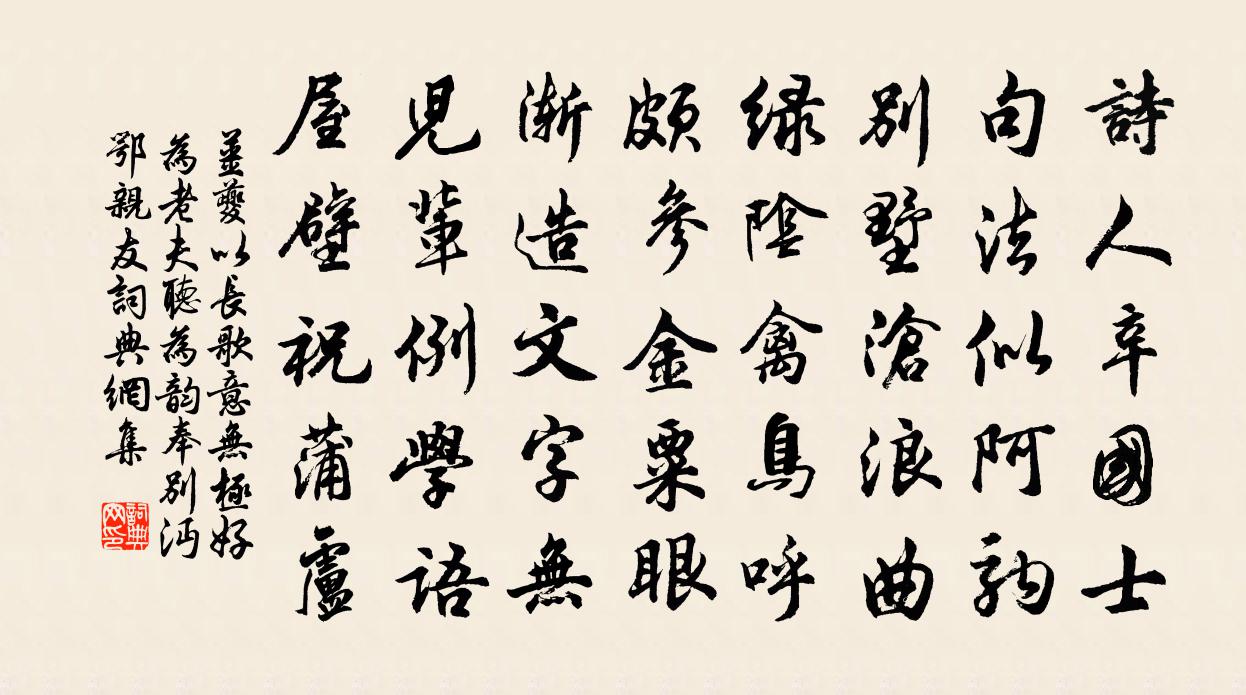 詩人辛國士
句法似阿駒
別墅滄浪曲
綠陰禽鳥呼
頗參金粟眼
漸造文字無
兒輩例學語
屋壁祝蒲盧
姜夔以長歌意無極好
為老夫聽為韵奉別沔
鄂親友詞典網集
詞典网印